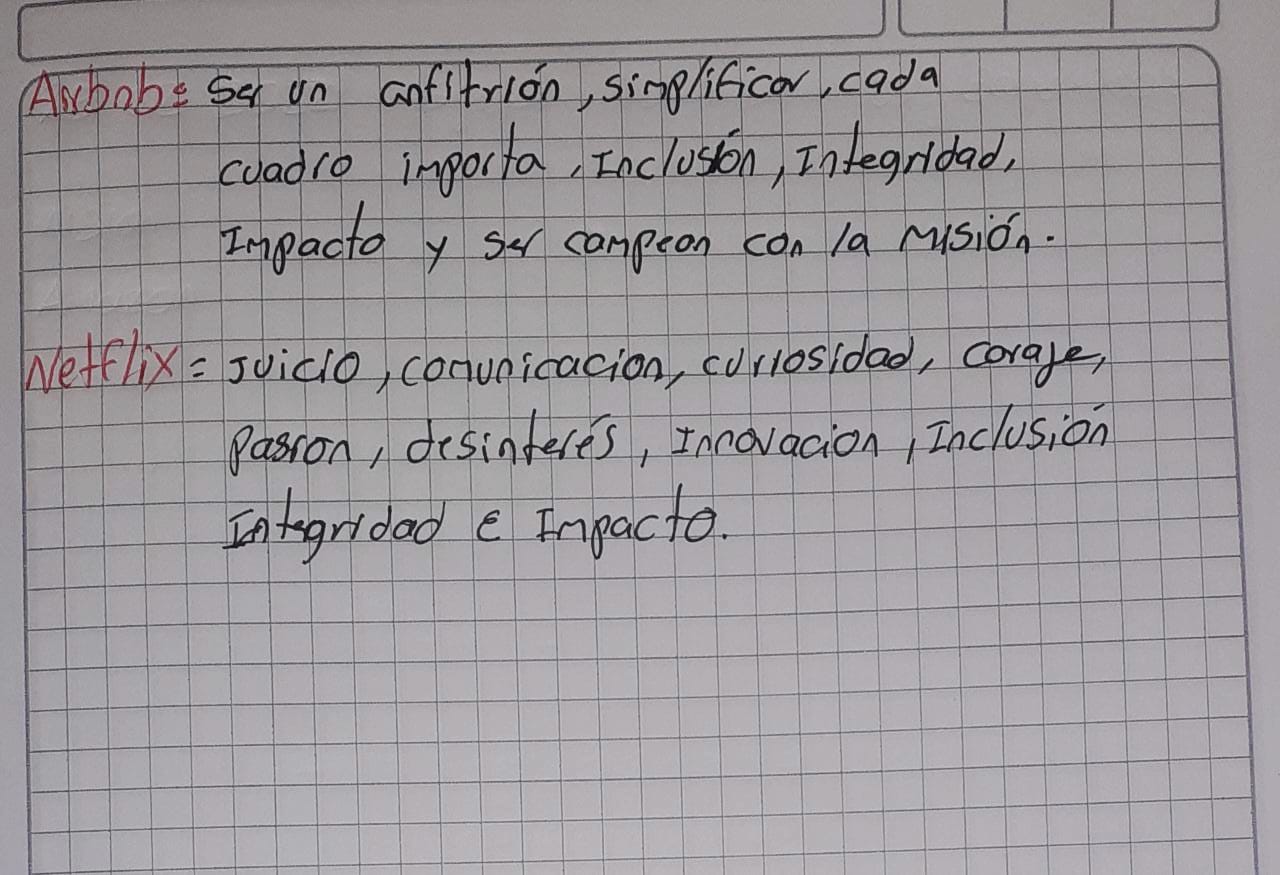 Airbnb: Ser un anfitrión, simplificar, cada
cuadro importa, Inclusión, Integridad,
Impacto y ser campeon con la misión.
Netflix = Juicio, comunicacion, curiosidad, coraje,
Pasion, desinterés, Innovacion, Inclusión
Integridad e Impacto.